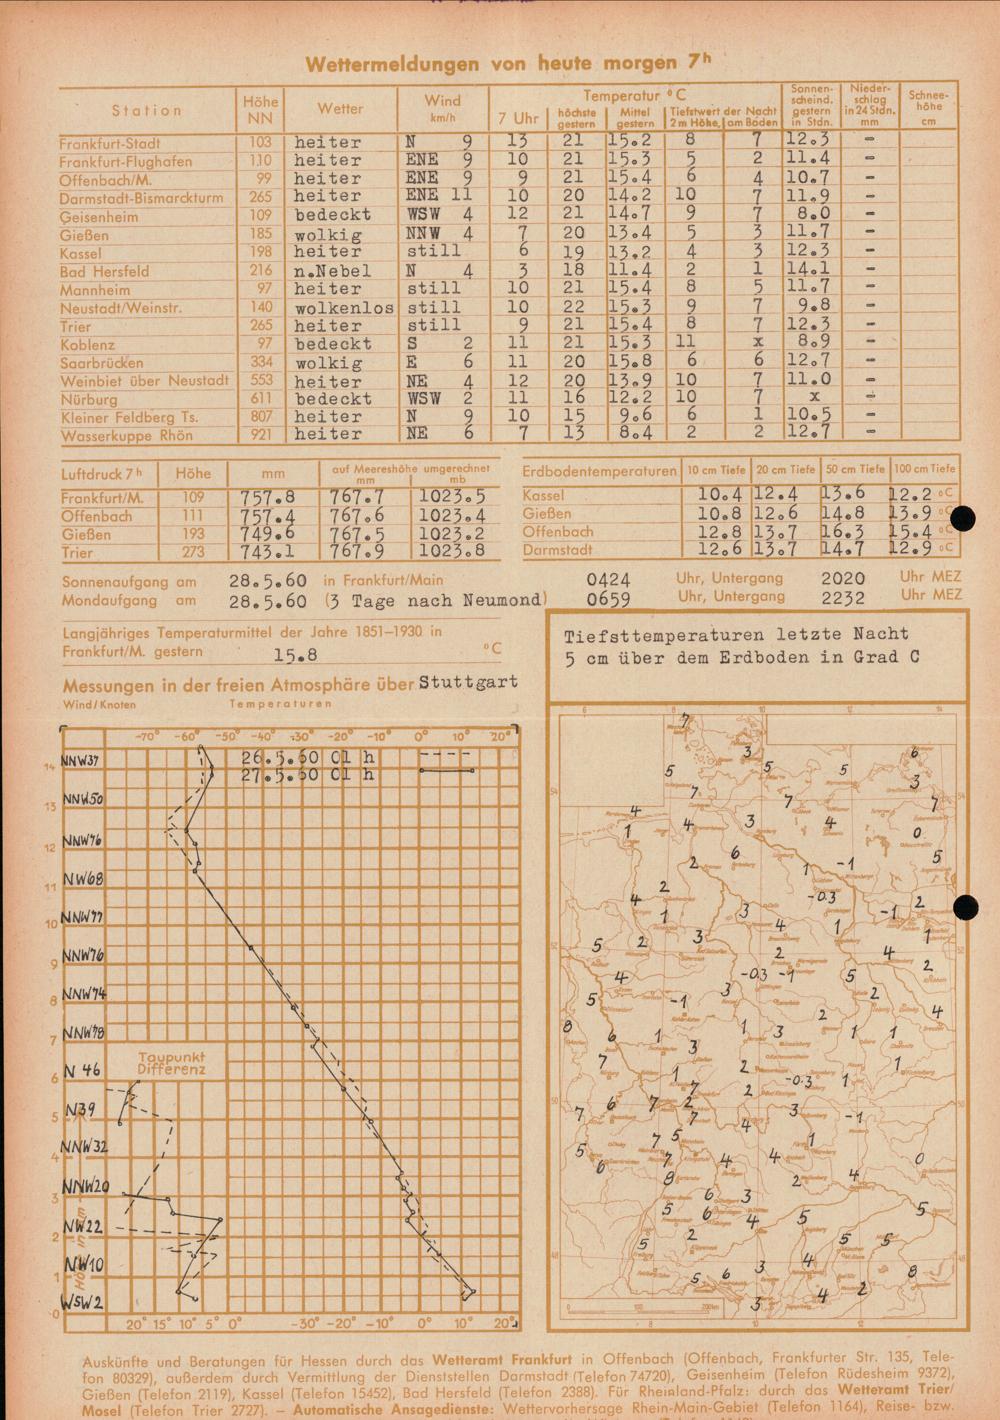 Wettermeldungen von heute morgen 7h
Station Höhe NN Wetter Wind km/h Temperatur °C 7 Uhr höchste gestern Mittel gestern Tiefstwert der Nacht 2 m Höhe, am Boden Sonnenscheind. gestern in Stdn. Niederschlag in 24 Stdn. mm Schneehöhe cm
Frankfurt-Stadt 103 heiter N 9 13 21 15.2 8 7 12.3 -
Frankfurt-Flughafen 110 heiter ENE 9 10 21 15.3 5 2 11.4 -
Offenbach/M. 99 heiter ENE 9 9 21 15.4 6 4 10.7 -
Darmstadt-Bismarckturm 265 heiter ENE 11 10 20 14.2 10 7 11.9 -
Geisenheim 109 bedeckt WSW 4 12 21 14.7 9 7 8.0 -
Gießen 185 wolkig NNW 4 7 20 13.4 5 3 11.7 -
Kassel 198 heiter still 6 19 13.2 4 3 12.3 -
Bad Hersfeld 216 n.Nebel N 4 3 18 11.4 2 1 14.1 -
Mannheim 97 heiter still 10 21 15.4 8 5 11.7 -
Neustadt/Weinstr. 140 wolkenlos still 10 22 15.3 9 7 9.8 -
Trier 265 heiter still 9 21 15.4 8 7 12.3 -
Koblenz 97 bedeckt S 2 11 21 15.3 11 x 8.9 -
Saarbrücken 334 wolkig E 6 11 20 15.8 6 6 12.7 -
Weinbiet über Neustadt 553 heiter NE 4 12 20 13.9 10 7 11.0 -
Nürburg 611 bedeckt WSW 2 11 16 12.2 10 7 x -
Kleiner Feldberg Ts. 807 heiter N 9 10 15 9.6 6 1 10.5 -
Wasserkuppe Rhön 921 heiter NE 6 7 13 8.4 2 2 12.7 -
Luftdruck 7h Höhe mm auf Meereshöhe umgerechnet mm mb
Frankfurt/M. 109 757.8 767.7 1023.5
Offenbach 111 757.4 767.6 1023.4
Gießen 193 749.6 767.5 1023.2
Trier 273 743.1 767.9 1023.8
Erdbodentemperaturen 10 cm Tiefe 20 cm Tiefe 50 cm Tiefe 100 cm Tiefe
Kassel 10.4 12.4 13.6 12.2 °C
Gießen 10.8 12.6 14.8 13.9 °C
Offenbach 12.8 13.7 16.3 15.4 °C
Darmstadt 12.6 13.7 14.7 12.9 °C
Sonnenaufgang am 28.5.60 in Frankfurt/Main 0424 Uhr, Untergang 2020 Uhr MEZ
Mondaufgang am 28.5.60 (3 Tage nach Neumond) 0659 Uhr, Untergang 2232 Uhr MEZ
Langjähriges Temperaturmittel der Jahre 1851–1930 in
Frankfurt/M. gestern 15.8 °C
Messungen in der freien Atmosphäre über Stuttgart
Wind/Knoten Temperaturen
-70° -60° -50° -40° -30° -20° -10° 0° 10° 20°
26.5.60 01 h
27.5.60 01 h
NNW37
14
NNW50
13
NNW76
12
NW68
11
NNW77
10
NNW76
9
NNW74
8
NNW78
7
N 46
6
Taupunkt
Differenz
N39
5
NNW32
4
NNW20
3
NW22
2
NW10
1
WSW2
0
Höhe in km
20° 15° 10° 5° 0° -30° -20° -10° 0° 10° 20°
Tiefsttemperaturen letzte Nacht
5 cm über dem Erdboden in Grad C
6 8 10 12 14
7
3 6
5 5 5 3
7 7 7
4 4 3 4 0
1
2 6 1 -1 5
2 -0.3 2
4 1 3 4 1 -1 1
5 2 3 2 4 2
4 -0.3 -1 5
5 -1 3 2 4
8 6 1 3 1 3 2 1 1
7 1 2 -0.3 1 1
7 6 7 2 7 2 3 -1
5 7 5 4 1
6 7 4 4 0
8 2 4
5 6 3 5
6 4 5
5 2 5 5
5 6 3 4 8
3 4 2
0 100 200km
8 10 12
Auskünfte und Beratungen für Hessen durch das Wetteramt Frankfurt in Offenbach (Offenbach, Frankfurter Str. 135, Tele-
fon 80329), außerdem durch Vermittlung der Dienststellen Darmstadt (Telefon 74720), Geisenheim (Telefon Rüdesheim 9372),
Gießen (Telefon 2119), Kassel (Telefon 15452), Bad Hersfeld (Telefon 2388). Für Rheinland-Pfalz: durch das Wetteramt Trier/
Mosel (Telefon Trier 2727). — Automatische Ansagedienste: Wettervorhersage Rhein-Main-Gebiet (Telefon 1164), Reise- bzw.